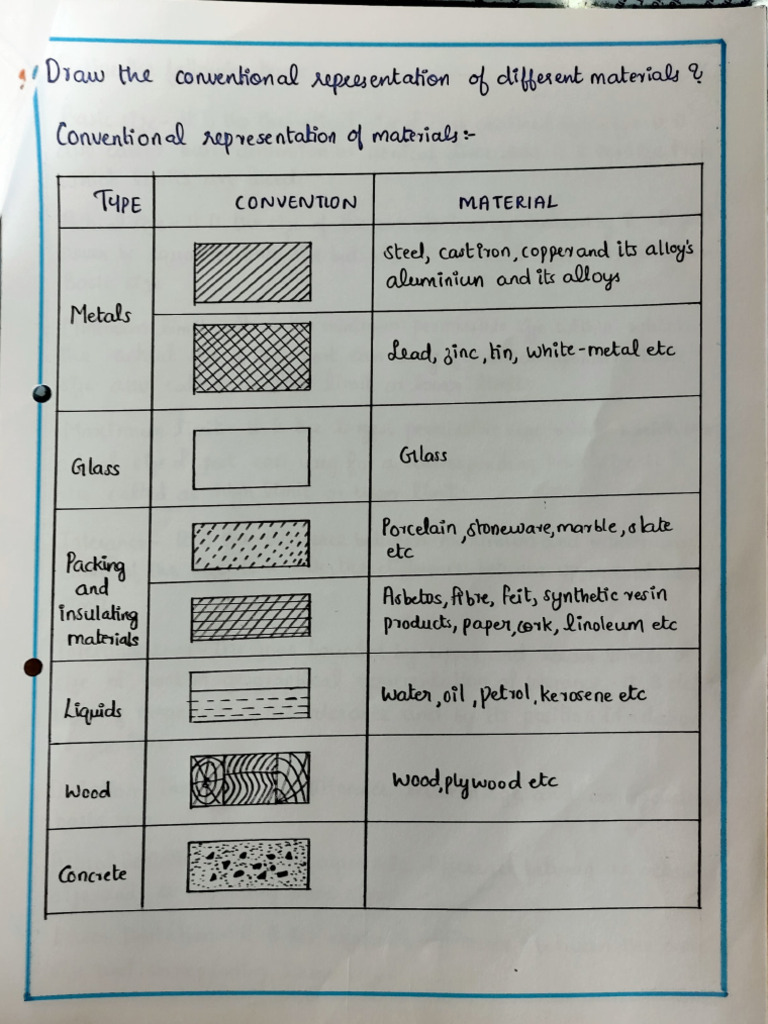 Draw the conventional representation of different materials ?
Conventional representation of materials:-
TYPE CONVENTION MATERIAL
Metals
Steel, cast iron, copper and its alloy's
aluminiun and its alloys
Lead, zinc, tin, white-metal etc
Glass
Glass
Packing
and
insulating
materials
Porcelain, stoneware, marble, slate
etc
Asbetos, fibre, feit, synthetic resin
products, paper, cork, linoleum etc
Liquids
Water, oil, petrol, kerosene etc
Wood
Wood, plywood etc
Concrete